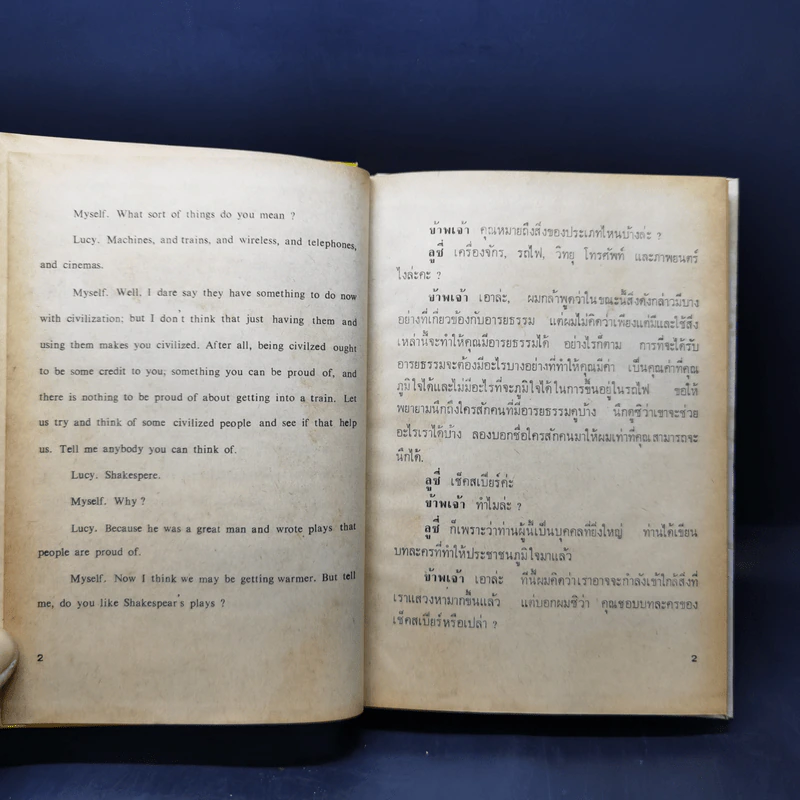 Myself. What sort of things do you mean ?
Lucy. Machines, and trains, and wireless, and telephones,
and cinemas.
Myself. Well, I dare say they have something to do now
with civilization; but I don't think that just having them and
using them makes you civilized. After all, being civilzed ought
to be some credit to you, something you can be proud of, and
there is nothing to be proud of about getting into a train. Let
us try and think of some civilized people and see if that help
us. Tell me anybody you can think of.
Lucy. Shakespere.
Myself. Why ?
Lucy. Because he was a great man and wrote plays that
people are proud of.
Myself. Now I think we may be getting warmer. But tell
me, do you like Shakespear's plays ?
2
ข้าพเจ้า คุณหมายถึงสิ่งของประเภทไหนบ้างล่ะ ?
ลูซี่ เครื่องจักร, รถไฟ, วิทยุ โทรศัพท์ และภาพยนตร์
ไงล่ะคะ ?
ข้าพเจ้า เอาล่ะ, ผมกล้าพูดว่าในขณะนี้สิ่งดังกล่าวมีบาง
อย่างที่เกี่ยวข้องกับอารยธรรม แต่ผมไม่คิดว่าเพียงแต่มีและใช้สิ่ง
เหล่านี้จะทำให้คุณมีอารยธรรมได้ อย่างไรก็ตาม การที่จะได้รับ
อารยธรรมจะต้องมีอะไรบางอย่างที่ทำให้คุณมีค่า เป็นคุณค่าที่คุณ
ภูมิใจได้และไม่มีอะไรที่จะภูมิใจได้ในการขึ้นอยู่ในรถไฟ ขอให้
พยายามนึกถึงใครสักคนที่มีอารยธรรมดูบ้าง นึกดูซิว่าเขาจะช่วย
อะไรเราได้บ้าง ลองบอกชื่อใครสักคนมาให้ผมเท่าที่คุณสามารถจะ
นึกได้.
ลูซี่ เช็คสเบียร์ค่ะ
ข้าพเจ้า ทำไมล่ะ ?
ลูซี่ ก็เพราะว่าท่านผู้นี้เป็นบุคคลที่ยิ่งใหญ่ ท่านได้เขียน
บทละครที่ทำให้ประชาชนภูมิใจมาแล้ว
ข้าพเจ้า เอาล่ะ ทีนี้ผมคิดว่าเราอาจจะกำลังเข้าใกล้สิ่งที่
เราแสวงหามากขึ้นแล้ว แต่บอกผมซิว่า คุณชอบบทละครของ
เช็คสเบียร์หรือเปล่า ?
2